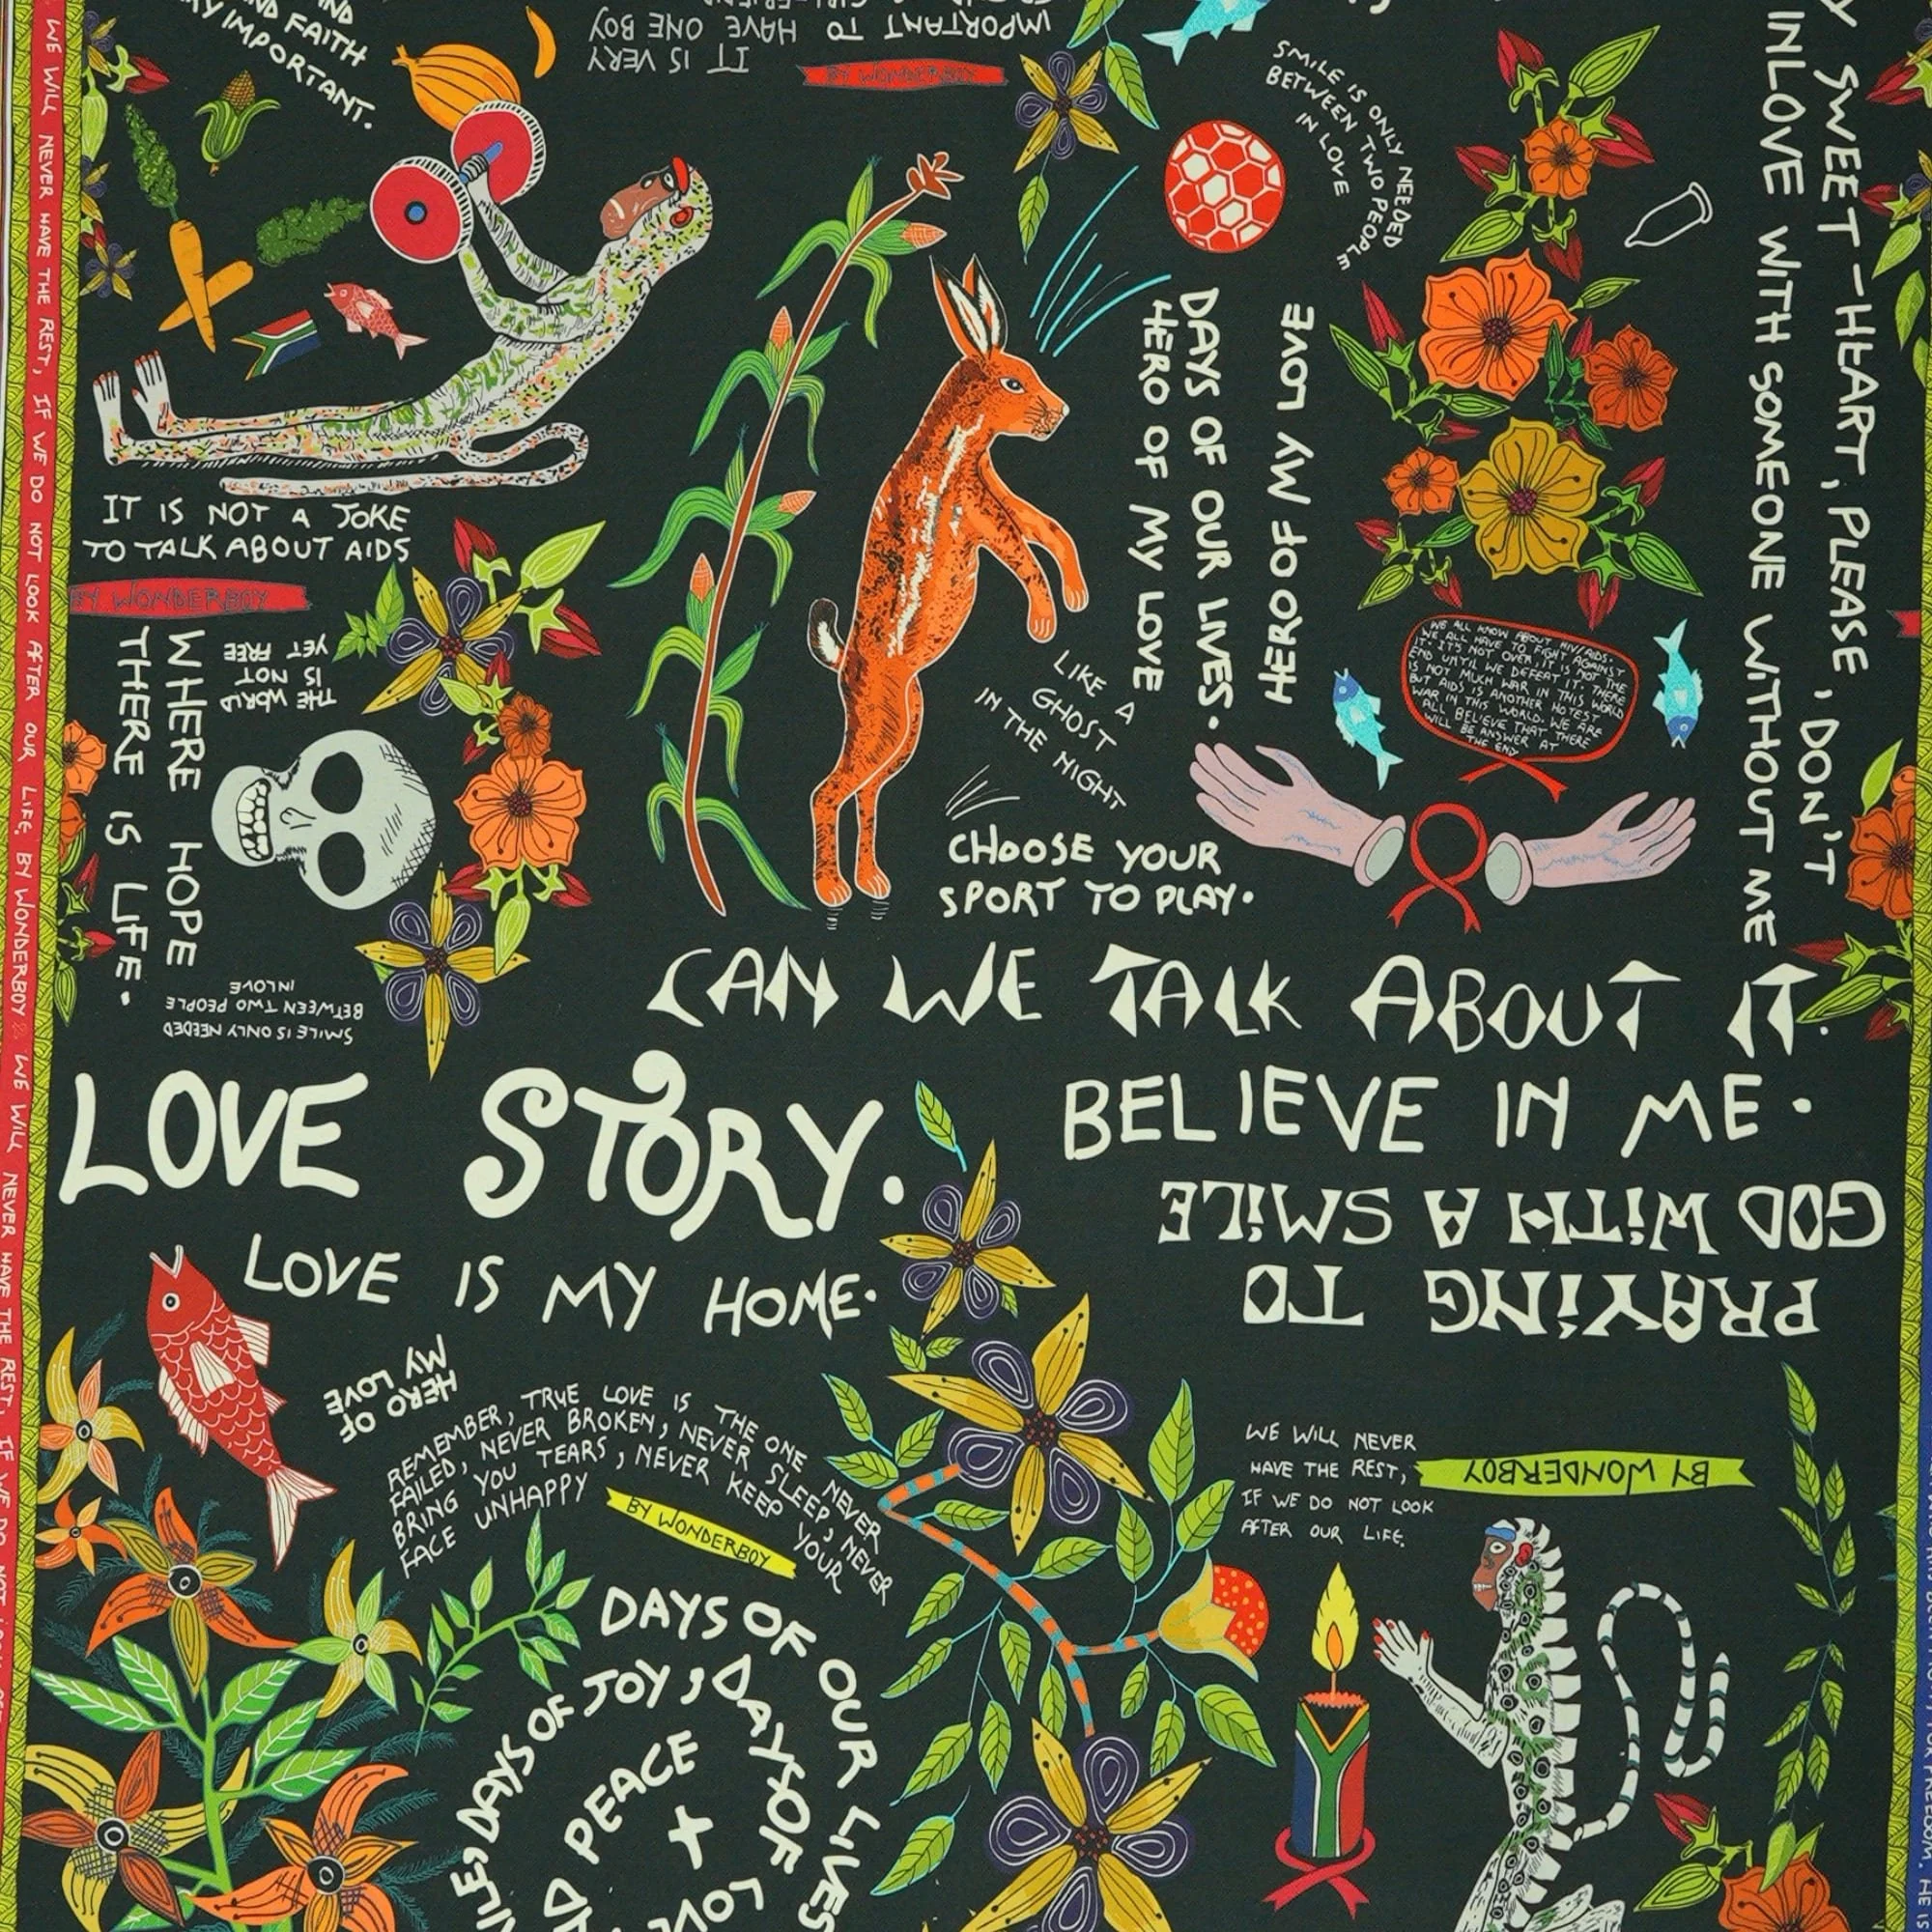 AND FAITH
IMPORTANT.
IT IS VERY
IMPORTANT TO HAVE ONE BOY
BY WONDERBOY
SMILE IS ONLY NEEDED
BETWEEN TWO PEOPLE
IN LOVE
SWEET-HEART, PLEASE, DON'T
INLOVE WITH SOMEONE WITHOUT ME
DAYS OF OUR LIVES.
HERO OF MY LOVE
HERO OF MY LOVE
IT IS NOT A JOKE
TO TALK ABOUT AIDS
BY WONDERBOY
THE WORLD
IS NOT
YET FREE
WHERE HOPE
THERE IS LIFE.
LIKE A
GHOST
IN THE NIGHT
WE ALL KNOW ABOUT HIV/AIDS.
WE ALL HAVE TO FIGHT AGAINST
IT. IT'S NOT OVER, IT IS NOT THE
END UNTIL WE DEFEAT IT. THERE
IS NOT MUCH WAR IN THIS WORLD
BUT AIDS IS ANOTHER HOTEST
WAR IN THIS WORLD. WE ARE
ALL BELIEVE THAT THERE
WILL BE ANSWER AT
THE END
CHOOSE YOUR
SPORT TO PLAY.
SMILE IS ONLY NEEDED
BETWEEN TWO PEOPLE
IN LOVE
CAN WE TALK ABOUT IT.
LOVE STORY.
BELIEVE IN ME.
PRAYING TO
GOD WITH A SMILE
LOVE IS MY HOME.
HERO OF
MY LOVE
REMEMBER, TRUE LOVE IS THE ONE NEVER
FAILED, NEVER BROKEN, NEVER SLEEP, NEVER
BRING YOU TEARS, NEVER KEEP YOUR
FACE UNHAPPY
BY WONDERBOY
WE WILL NEVER
HAVE THE REST,
IF WE DO NOT LOOK
AFTER OUR LIFE.
BY WONDERBOY
DAYS OF OUR LIVES
DAYS OF JOY, DAYS OF
PEACE
LOV
WE WILL NEVER HAVE THE REST, IF WE DO NOT LOOK AFTER OUR LIFE. BY WONDERBOY WE WILL NEVER HAVE THE REST, IF WE DO NOT
FOR FREEDOM. HE IS